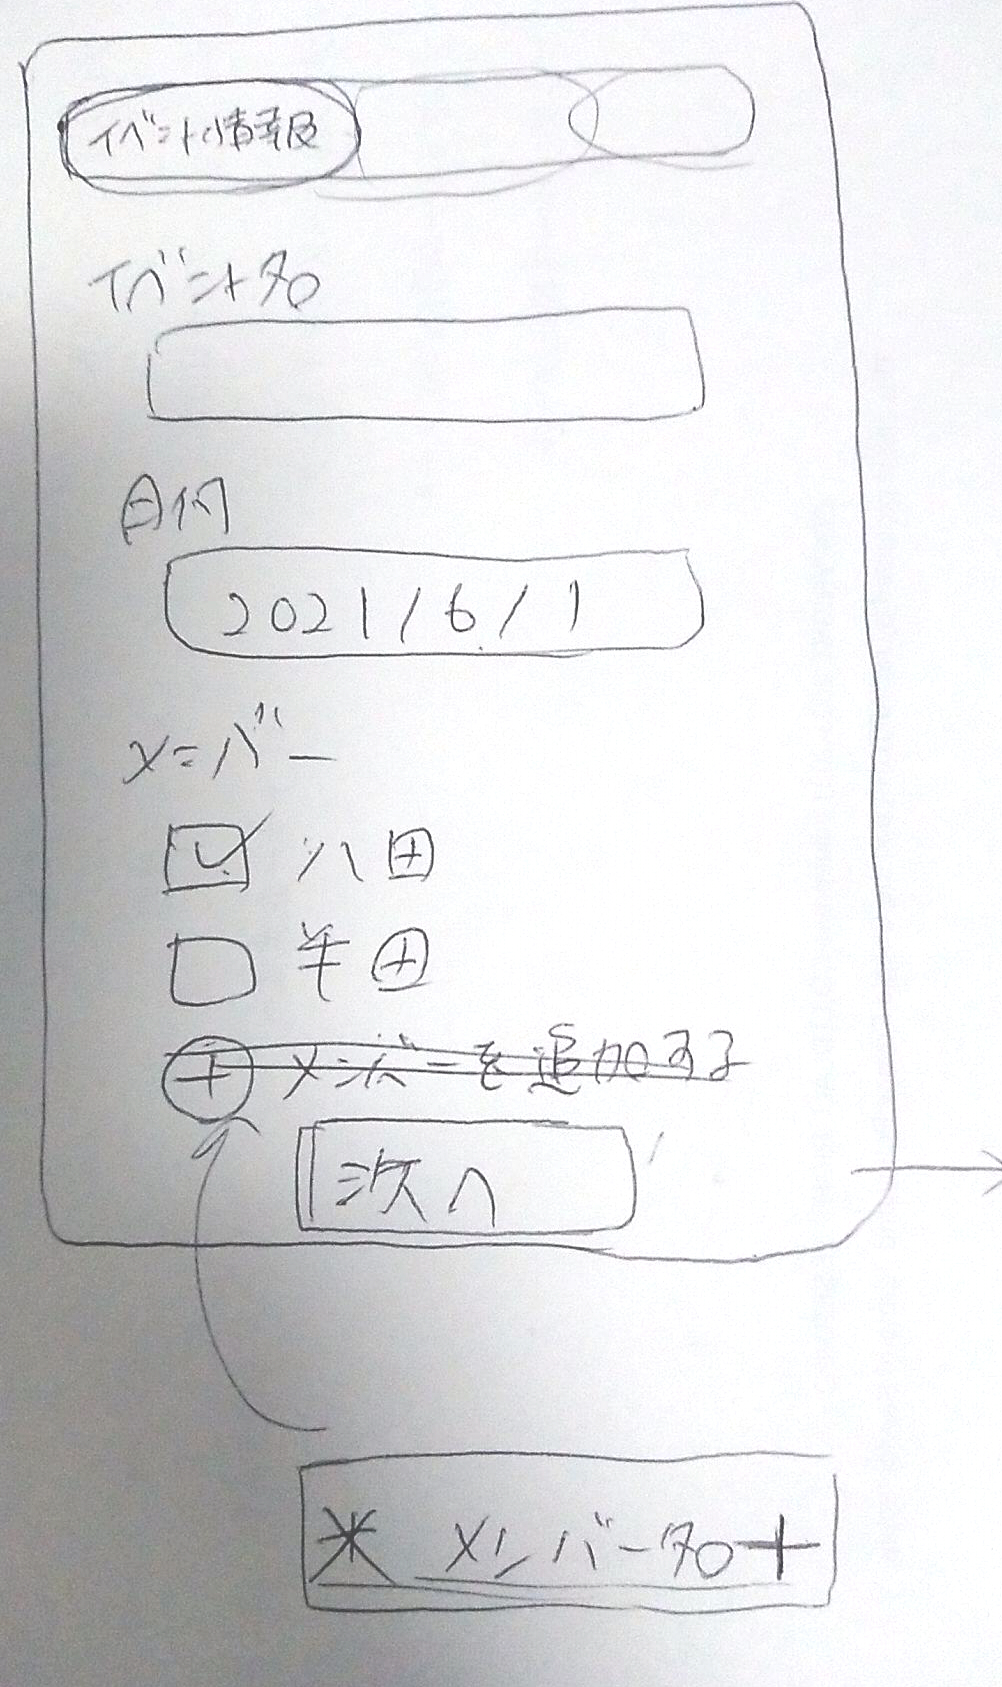 イベント情報
イベント名
日付
2021/6/1
メンバー
八田
半田
メンバーを追加する
次へ
メンバー名 +